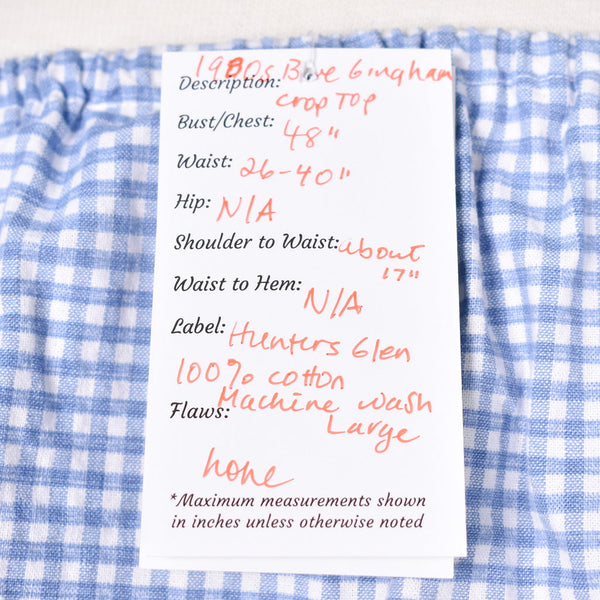 1980s Blue Gingham
Description:
Crop Top
Bust/Chest: 48"
Waist: 26-40"
Hip: N/A
Shoulder to Waist: about
17"
Waist to Hem: N/A
Label: Hunters Glen
100% cotton
Flaws: Machine wash
Large
none
*Maximum measurements shown
in inches unless otherwise noted